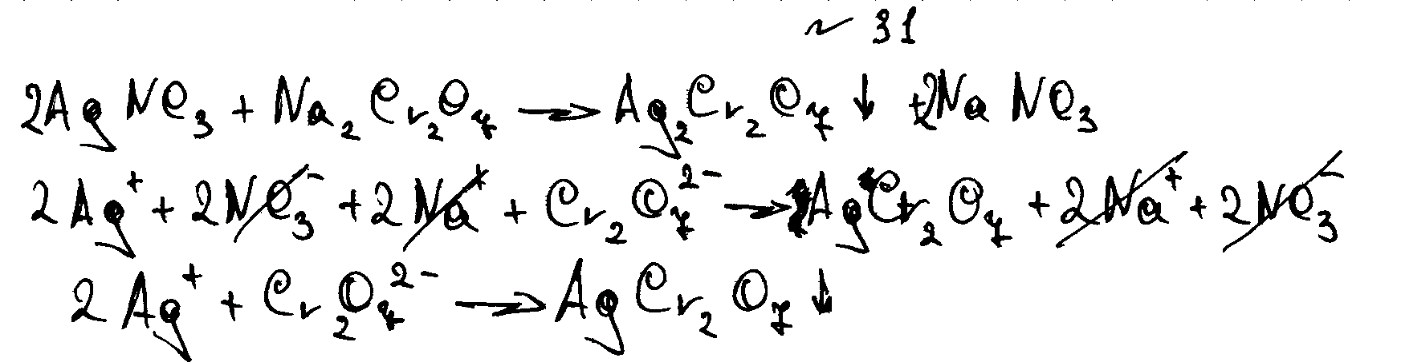 ~ 31
2AgNO₃ + Na₂Cr₂O₇ → Ag₂Cr₂O₇↓ + 2NaNO₃
2Ag⁺ + 2NO₃⁻ + 2Na⁺ + Cr₂O₇²⁻ → AgCr₂O₇ + 2Na⁺ + 2NO₃⁻
2Ag⁺ + Cr₂O₇²⁻ → AgCr₂O₇↓